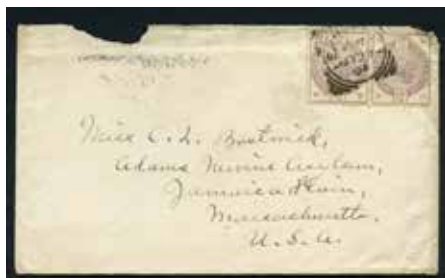 Miss C. L. Bostwick,
Adams Nervine Asylum,
Jamaica Plain,
Massachusetts.
U.S.A.